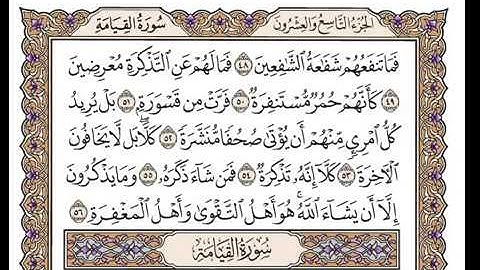 سُورَةُ القِيَامَةِ الجُزءُ التَّاسِعُ وَالعِشْرُونَ
فَمَا تَنفَعُهُمْ شَفَٰعَةُ ٱلشَّٰفِعِينَ ٤٨ فَمَا لَهُمْ عَنِ ٱلتَّذْكِرَةِ مُعْرِضِينَ
٤٩ كَأَنَّهُمْ حُمُرٌ مُّسْتَنفِرَةٌ ٥٠ فَرَّتْ مِن قَسْوَرَةٍۭ ٥١ بَلْ يُرِيدُ
كُلُّ ٱمْرِئٍ مِّنْهُمْ أَن يُؤْتَىٰ صُحُفًا مُّنَشَّرَةً ٥٢ كَلَّاۖ بَل لَّا يَخَافُونَ
ٱلْءَاخِرَةَ ٥٣ كَلَّآ إِنَّهُۥ تَذْكِرَةٌ ٥٤ فَمَن شَآءَ ذَكَرَهُۥ ٥٥ وَمَا يَذْكُرُونَ
إِلَّآ أَن يَشَآءَ ٱللَّهُۚ هُوَ أَهْلُ ٱلتَّقْوَىٰ وَأَهْلُ ٱلْمَغْفِرَةِ ٥٦
سُورَةُ القِيَامَةِ